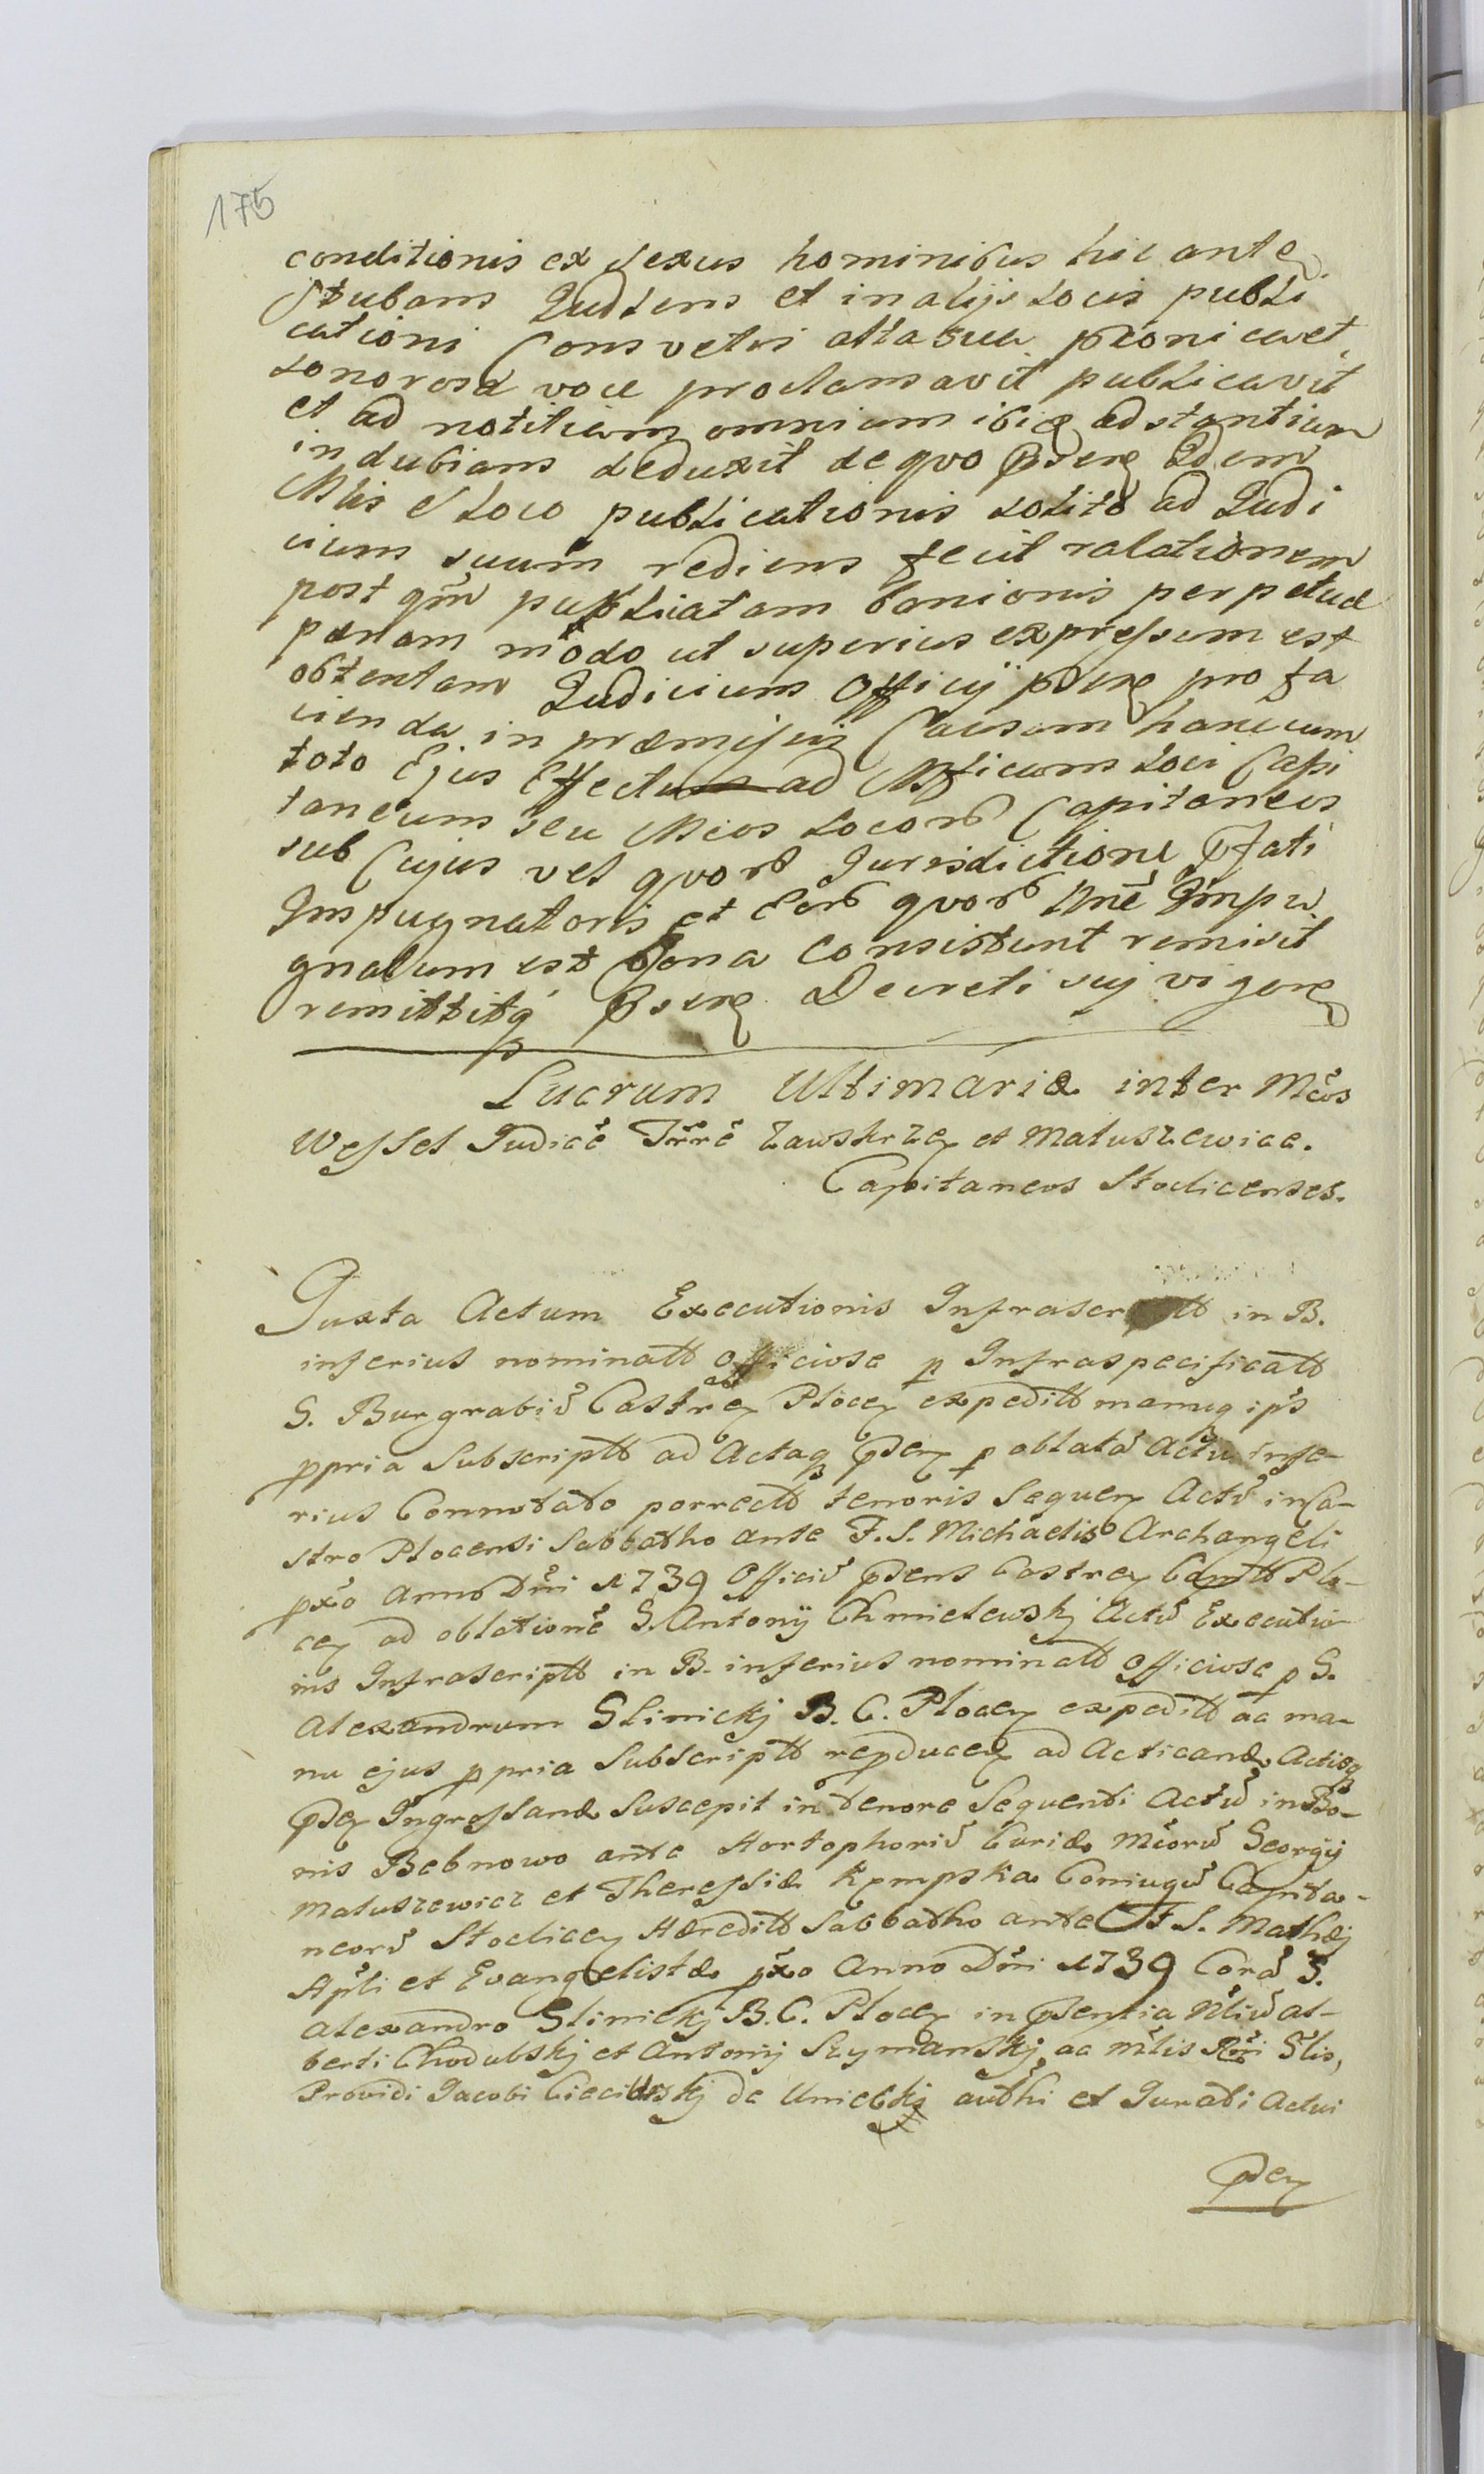 175
conditionis ex sexus hominibus hic ante
Stubam Judlem et in alijs Locis publi
cationi Consvetis alta sua proni cavet
sonorosa voce proclamavit publicavit
et ad notitiam omnium ibiq adstantium
indubiam deduxit de qvo pdseng Idem
Mlis e Loco publicationis solito ad Judi
cium suum rediens fecit ralationem
post qm̃ publicatam banionis perpetuæ
pænam modo ut superius expressum est
obtentam Judicium Officij pdseng pro fa
cienda in præmissis Causam hanc cum
toto Ejus Effectu ad Mficum Loci Capi
taneum seu Mcos Locorꝝ Capitaneos
sub Cujus vel qvorꝝ Jurisdictione pfati
Impugnatoris et Eorꝝ qvorꝝ Nnẽ Impu
gnatum est Bona Consistunt remisit
remittitq́ pdseng Decreti suj vigore
Lucrum Ultimariæ inter Mc̃os
Wessel Judicẽ Trrẽ Zawskrzeń et Matuszewicz.
Capitaneos Stoclicenses.
Juxta Actum Executionis Infrascriptt in B.
inferius nominatt officiose p Infraspecificatt
G. Burgrabiũ Castreń Ploceń expeditt manuq ips
ppria Subscriptt ad Actaq pdseń p oblatã Actu infe-
rius Connotato porrectt tenoris Sequeń Actũ in Ca-
stro Plocensi Sabbatho ante F. S. Michaelis Archangeli
pxo Anno Dñi 1739 Officiũ pdsens Castreń Captt Plo-
ceń ad oblationẽ G. Antonÿ Chmielewskj Actũ Executio-
nis Infrascriptt in B. inferius nominatt officiose p G.
Alexandrum Slinickj B. C. Ploceń expeditt ac ma-
nu ejus ppria Subscriptt repducend ad Acticand, Actisq
pdseń Ingrossand Suscepit in tenore Sequenti Actũ in Bo-
nis Bebnowo ante Hortophoriũ Curiæ Mc̃orũ Georgÿ
Matuszewicz et Theressiæ Kempska Coniugũ Capita-
neorũ Stocliceń Hæreditt Sabbatho ante F S. Mathæj
Apli et Evangelistæ pxo Anno Dñi 1739 Corã G.
Alexandro Slinickj B. C. Ploceń in pdsentia Nliũ Al-
berti Chodubskj et Antonij Szymanskj, ac mĩlis Rñi Glis,
Providi Jacobi Cieciẽskj de Unieckj authi et Jurati Actui
pdseń